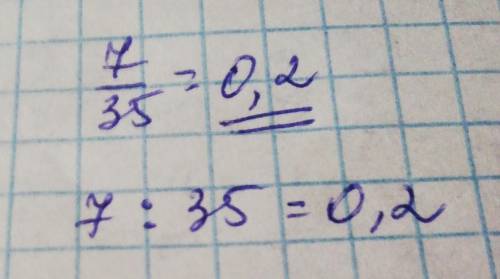 7/35 = 0,2
7 : 35 = 0,2